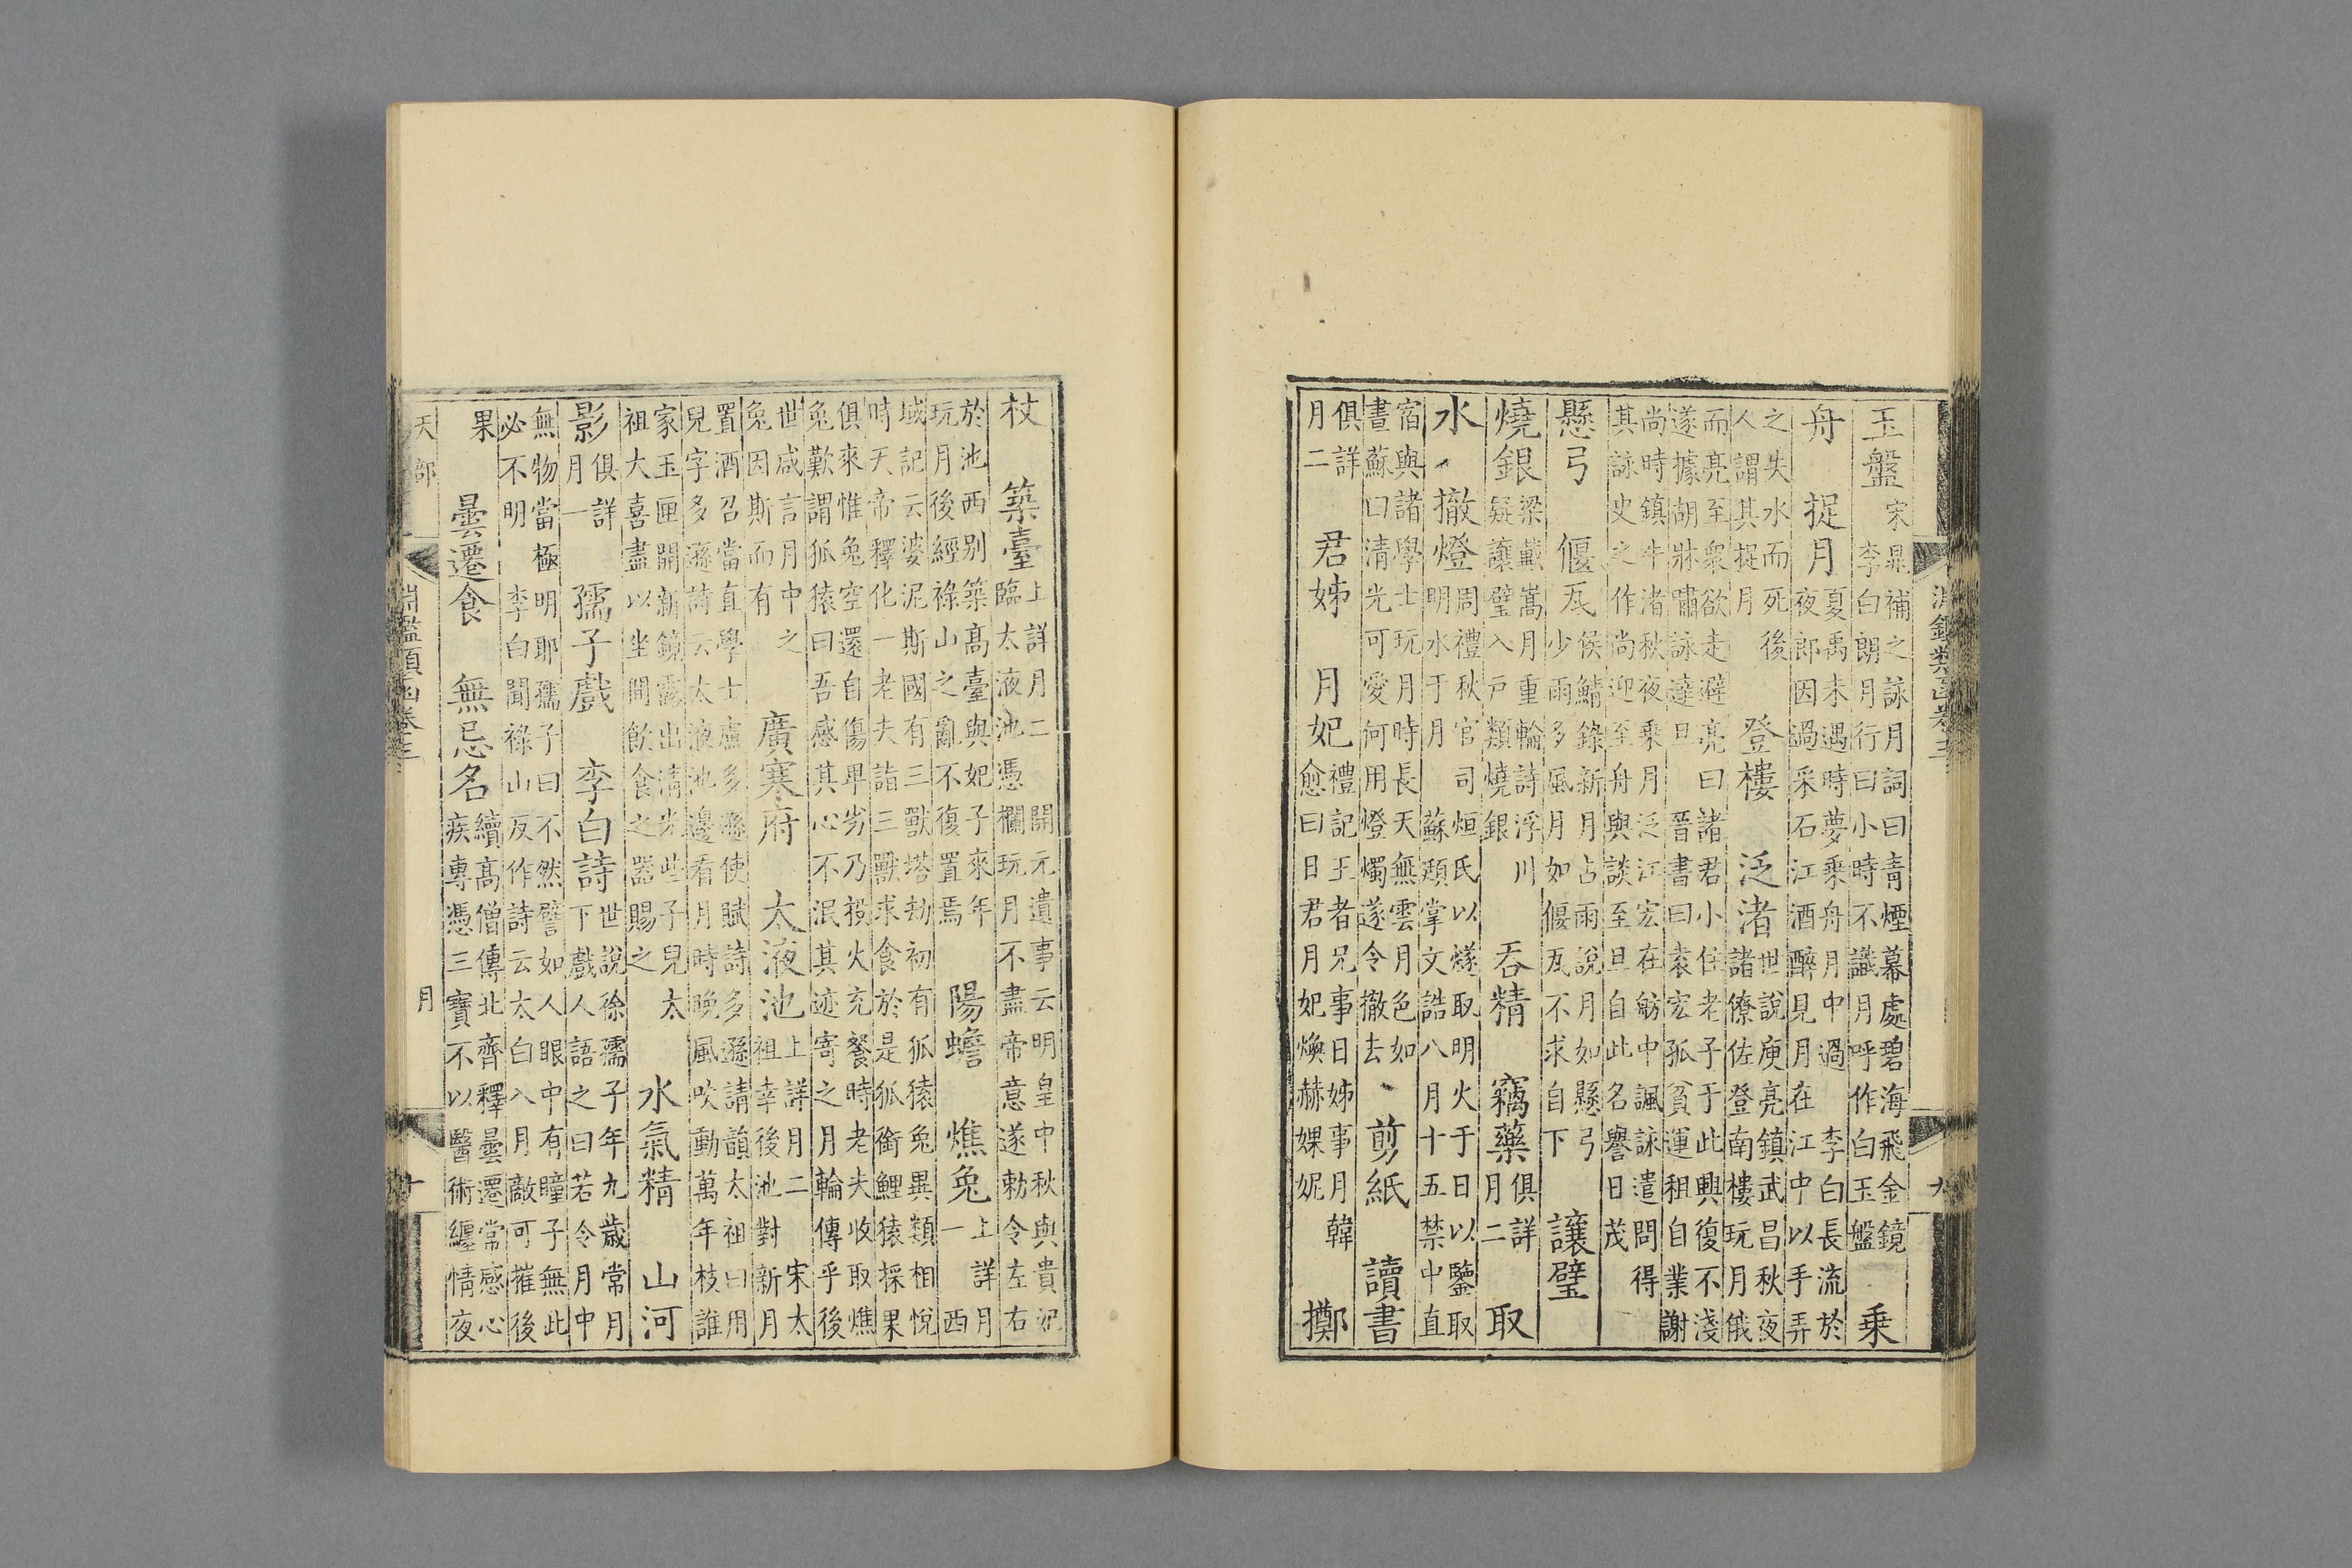 淵鑑類函卷三 九
玉盤 宋晁補之詠月詞曰青煙幕處碧海飛金鏡
李白朗月行曰小時不識月呼作白玉盤 乘
舟 捉月 夏禹未遇時夢乘舟月中過 李白長流於
夜郎因過采石江酒醉見月在江中以手弄
之失水而死後
人謂其捉月 登樓 泛渚 世說庾亮鎮武昌秋夜
諸僚佐登南樓玩月俄
而亮至衆欲走避亮曰諸君小住老子于此興復不淺
遂據胡牀嘯詠達旦 晉書曰袁宏孤貧運租自業謝
尚時鎮牛渚秋夜乘月泛江宏在舫中諷詠遣問得
其詠史之作尚迎至舟與談至旦自此名譽日茂
懸弓 偃瓦 侯鯖錄新月占雨說月如懸弓
少雨多風月如偃瓦不求自下 讓璧
燒銀 梁戴嵩月重輪詩浮川
疑讓璧入戶類燒銀 吞精 竊藥 俱詳
月二 取
水 撤燈 周禮秋官司烜氏以燧取明火于日以鑒取
明水于月 蘇頲掌文誥八月十五禁中直
宿與諸學士玩月時長天無雲月色如
晝蘇曰清光可愛何用燈燭遂令撤去 剪紙 讀書
俱詳
月二 君姊 月妃 禮記王者兄事日姊事月 韓
愈曰日君月妃煥赫婐妮 擲
杖 築臺 上詳月二 開元遺事云明皇中秋與貴妃
臨太液池憑欄玩月不盡帝意遂勅令左右
於池西别築高臺與妃子來年
玩月後經祿山之亂不復置焉 陽蟾 燋兔 上詳月
一 西
域記云婆泥斯國有三獸塔劫初有狐猿兔異類相悅
時天帝釋化一老夫詣三獸求食於是狐銜鯉猿採果
俱來惟兔空還自傷卑劣乃投火充餐時老夫收取燋
兔歎謂狐猿曰吾感其心不泯其迹寄之月輪傳乎後
世咸言月中之
兔因斯而有 廣寒府 太液池 上詳月二 宋太
祖幸後池對新月
置酒召當直學士盧多遜使賦詩多遜請韻太祖曰用
兒字多遜詩云太液池邊看月時晚風吹動萬年枝誰
家玉匣開新鏡露出清光些子兒太
祖大喜盡以坐間飲食之器賜之 水氣精 山河
影 俱詳
月一 孺子戲 李白詩 世說徐孺子年九歲常月
下戲人語之曰若令月中
無物當極明耶孺子曰不然譬如人眼中有瞳子無此
必不明 李白聞祿山反作詩云太白入月敵可摧後
果 曇遷食 無忌名 續高僧傳北齊釋曇遷常感心
疾專憑三寶不以醫術纏情夜
天部 月
淵鑑類函卷三 十